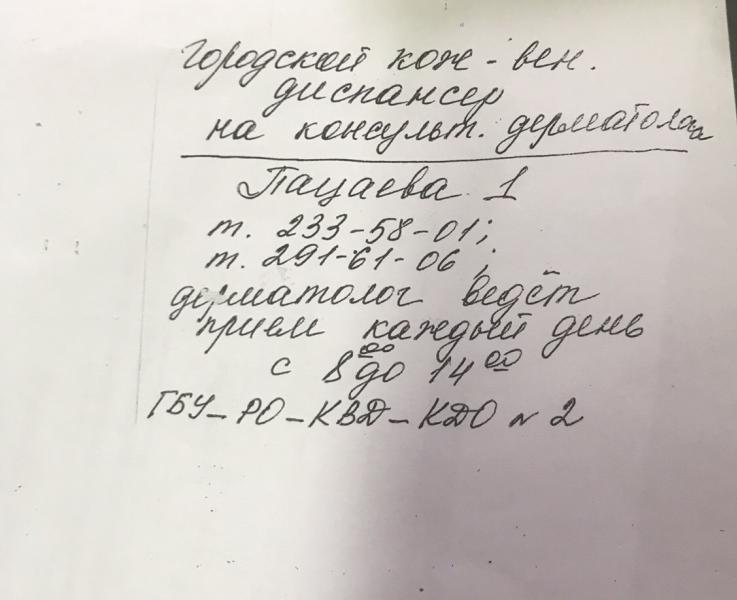 Городской кож-вен.
диспансер
на консульт. дерматолога
Пацаева 1
т. 233-58-01;
т. 291-61-06;
дерматолог ведёт
приём каждый день
с 8⁰⁰ до 14⁰⁰
ГБУ-РО-КВД-КДО N 2